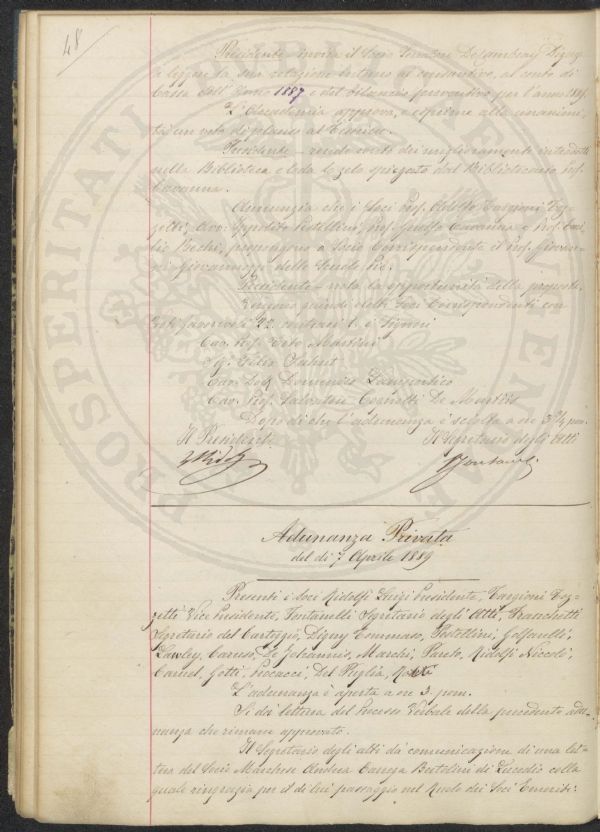 48
Presidente invita il Socio Tommaso De Cambray Digny
a leggere la sua relazione intorno al consuntivo, al conto di
Cassa dell'Anno 1887 e del bilancio preventivo per l'anno 1889.
L'Accademia approva, e esprime alla unanimi-
tà un voto di plauso al
Presidente – rende conto dei miglioramenti introdotti
nella Biblioteca e loda lo zelo spiegato dal Bibliotecario Prof.
Cavanna.
Annunzia che i Soci Prof. Adolfo Targioni Toz-
zetti, Avv. Ippolito Pestellini, Prof. Guelfo Cavanna e Prof. Emi-
lio Bechi, propongono a Socio Corrispondente il Prof. Giovan-
ni Giovannozzi delle Scuole Pie.
Presidente – nota la opportunità della proposta.
Vengono quindi eletti Soci Corrispondenti con
voti favorevoli 22 contrari 1. i Signori
Cav. Prof. Tito Martini
Ig.
Cav. Dott. Domenico Lampertico
Cav. Prof. Salvatore Cognetti De Martiis
Dopo di che l'adunanza è sciolta a ore 3 3/4 pom.
Il Presidente Il Segretario degli Atti
LRidolfi Fontanelli
Adunanza Privata
del dì 7 Aprile 1889
Presenti i Soci Ridolfi Luigi Presidente, Targioni Toz-
zetti Vice Presidente, Fontanelli Segretario degli Atti, Franchetti
Segretario del Carteggio, Digny Tommaso, Pestellini,
Lawley, Caruso, De Johannis, Marchi, Pareto, Ridolfi Niccolò,
Carnel, Gotti, Del Puglia,
L'adunanza è aperta a ore 3 pom.
Si dà lettura del Processo Verbale della precedente adu-
nanza che rimane approvato.
Il Segretario degli atti dà comunicazione di una let-
tera del Socio Marchese Andrea Carega Bertolini di Lucedio colla
quale ringrazia per il di lui passaggio nel Ruolo dei Soci Emeriti:
PROSPERITATI PUBLICAE AUGENDAE